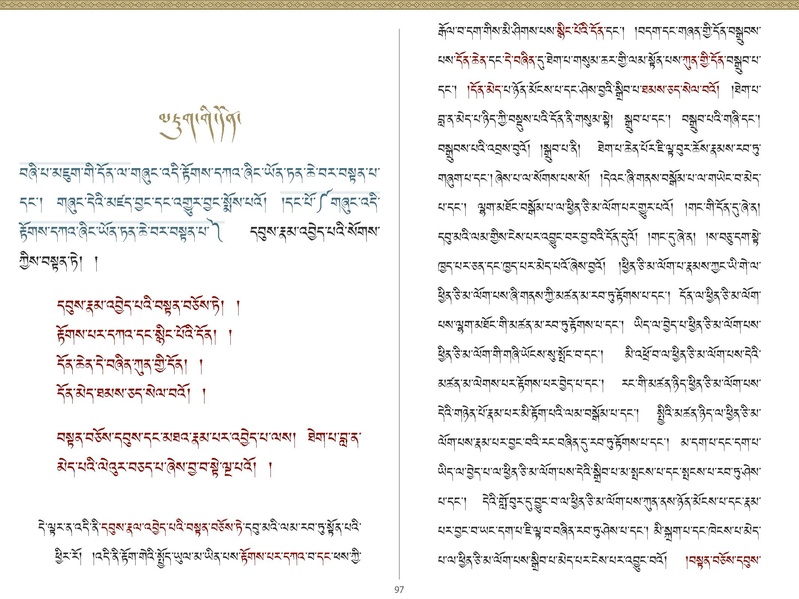 མཇུག་གི་དོན།
བཞི་པ་མཇུག་གི་དོན་ལ་གཞུང་འདི་རྟོགས་དཀའ་ཞིང་ཡོན་ཏན་ཆེ་བར་བསྟན་པ་
དང་། གཞུང་དེའི་མཛད་བྱང་དང་འགྱུར་བྱང་སྨོས་པའོ། །དང་པོ་༼གཞུང་འདི་
རྟོགས་དཀའ་ཞིང་ཡོན་ཏན་ཆེ་བར་བསྟན་པ་༽ དབུས་རྣམ་འབྱེད་པའི་སོགས་
ཀྱིས་བསྟན་ཏེ། །
དབུས་རྣམ་འབྱེད་པའི་བསྟན་བཅོས་ཏེ། །
རྟོགས་པར་དཀའ་དང་སྙིང་པོའི་དོན། །
དོན་ཆེན་དེ་བཞིན་ཀུན་གྱི་དོན། །
དོན་མེད་ཐམས་ཅད་སེལ་བའོ། །
བསྟན་བཅོས་དབུས་དང་མཐའ་རྣམ་པར་འབྱེད་པ་ལས། ཐེག་པ་བླ་ན་
མེད་པའི་ལེའུར་བཅད་པ་ཞེས་བྱ་བ་སྟེ་ལྔ་པའོ། །
དེ་ལྟར་ན་འདི་ནི་དབུས་རྣལ་འབྱེད་པའི་བསྟན་བཅོས་ཏེ་དབུ་མའི་ལམ་རབ་ཏུ་སྟོན་པའི་
ཕྱིར་རོ། །འདི་ནི་རྟོག་གེའི་སྤྱོད་ཡུལ་མ་ཡིན་པས་རྟོགས་པར་དཀའ་བ་དང་ཕས་ཀྱི་
རྒོལ་བ་དག་གིས་མི་ཤིགས་པས་སྙིང་པོའི་དོན་དང་། །བདག་དང་གཞན་གྱི་དོན་བསྒྲུབས་
པས་དོན་ཆེན་དང་དེ་བཞིན་དུ་ཐེག་པ་གསུམ་ཆར་གྱི་ལམ་སྟོན་པས་ཀུན་གྱི་དོན་བསྒྲུབ་པ་
དང་། །དོན་མེད་པ་ཉོན་མོངས་པ་དང་ཤེས་བྱའི་སྒྲིབ་པ་ཐམས་ཅད་སེལ་བའོ། །ཐེག་པ་
བླ་ན་མེད་པ་ཉིད་ཀྱི་བསྡུས་པའི་དོན་ནི་གསུམ་སྟེ། སྒྲུབ་པ་དང་། བསྒྲུབ་པའི་གཞི་དང་།
བསྒྲུབས་པའི་འབྲས་བུའོ། །སྒྲུབ་པ་ནི། ཐེག་པ་ཆེན་པོར་ཇི་ལྟ་བུར་ཆོས་རྣམས་རབ་ཏུ་
གཞུག་པ་དང་། ཞེས་པ་ལ་སོགས་པས་སོ། །དེའང་ཞི་གནས་བསྒོམ་པ་ལ་གཡེང་བ་མེད་
པ་དང་། ལྷག་མཐོང་བསྒོམ་པ་ལ་ཕྱིན་ཅི་མ་ལོག་པར་གྱུར་པའོ། །གང་གི་དོན་དུ་ཞེ་ན།
དབུ་མའི་ལམ་གྱིས་ངེས་པར་འབྱུང་བར་བྱ་བའི་དོན་དུའོ། །གང་དུ་ཞེ་ན། །ས་བཅུ་དག་སྟེ་
ཁྱད་པར་ཅན་དང་ཁྱད་པར་མེད་པའོ་ཞེས་བྱའོ། །ཕྱིན་ཅི་མ་ལོག་པ་རྣམས་ཀྱང་ཡི་གེ་ལ་
ཕྱིན་ཅི་མ་ལོག་པས་ཞི་གནས་ཀྱི་མཚན་མ་རབ་ཏུ་རྟོགས་པ་དང་། དོན་ལ་ཕྱིན་ཅི་མ་ལོག་
པས་ལྷག་མཐོང་གི་མཚན་མ་རབ་ཏུ་རྟོགས་པ་དང་། ཡིད་ལ་བྱེད་པ་ཕྱིན་ཅི་མ་ལོག་པས་
ཕྱིན་ཅི་མ་ལོག་གི་གཞི་ཡོངས་སུ་སྤོང་བ་དང་། མི་འཕྲོ་བ་ལ་ཕྱིན་ཅི་མ་ལོག་པས་དེའི་
མཚན་མ་ལེགས་པར་རྟོགས་པར་བྱེད་པ་དང་། རང་གི་མཚན་ཉིད་ཕྱིན་ཅི་མ་ལོག་པས་
དེའི་གཉེན་པོ་རྣམ་པར་མི་རྟོག་པའི་ལམ་བསྒོམ་པ་དང་། སྤྱིའི་མཚན་ཉིད་ལ་ཕྱིན་ཅི་མ་
ལོག་པས་རྣམ་པར་བྱང་བའི་རང་བཞིན་དུ་རབ་ཏུ་རྟོགས་པ་དང་། མ་དག་པ་དང་དག་པ་
ཡིད་ལ་བྱེད་པ་ལ་ཕྱིན་ཅི་མ་ལོག་པས་དེའི་སྒྲིབ་པ་མ་སྤངས་པ་དང་སྤངས་པ་རབ་ཏུ་ཤེས་
པ་དང་། དེའི་གློ་བུར་དུ་བྱུང་བ་ལ་ཕྱིན་ཅི་མ་ལོག་པས་ཀུན་ནས་ཉོན་མོངས་པ་དང་རྣམ་
པར་བྱང་བ་ཡང་དག་པ་ཇི་ལྟ་བ་བཞིན་རབ་ཏུ་ཤེས་པ་དང་། མི་སྐྲག་པ་དང་ཁེངས་པ་མེད་
པ་ལ་ཕྱིན་ཅི་མ་ལོག་པས་སྒྲིབ་པ་མེད་པར་ངེས་པར་འབྱུང་བའོ། །བསྟན་བཅོས་དབུས་
97